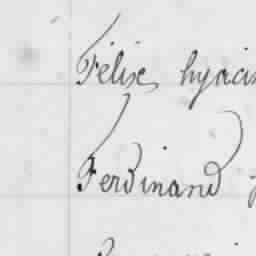 Félix, hyacin
Ferdinand